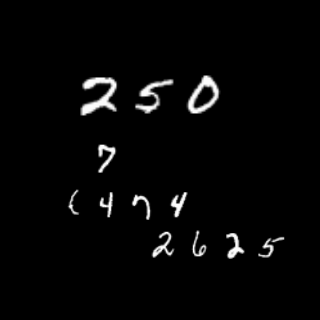 250
7
(474
2625